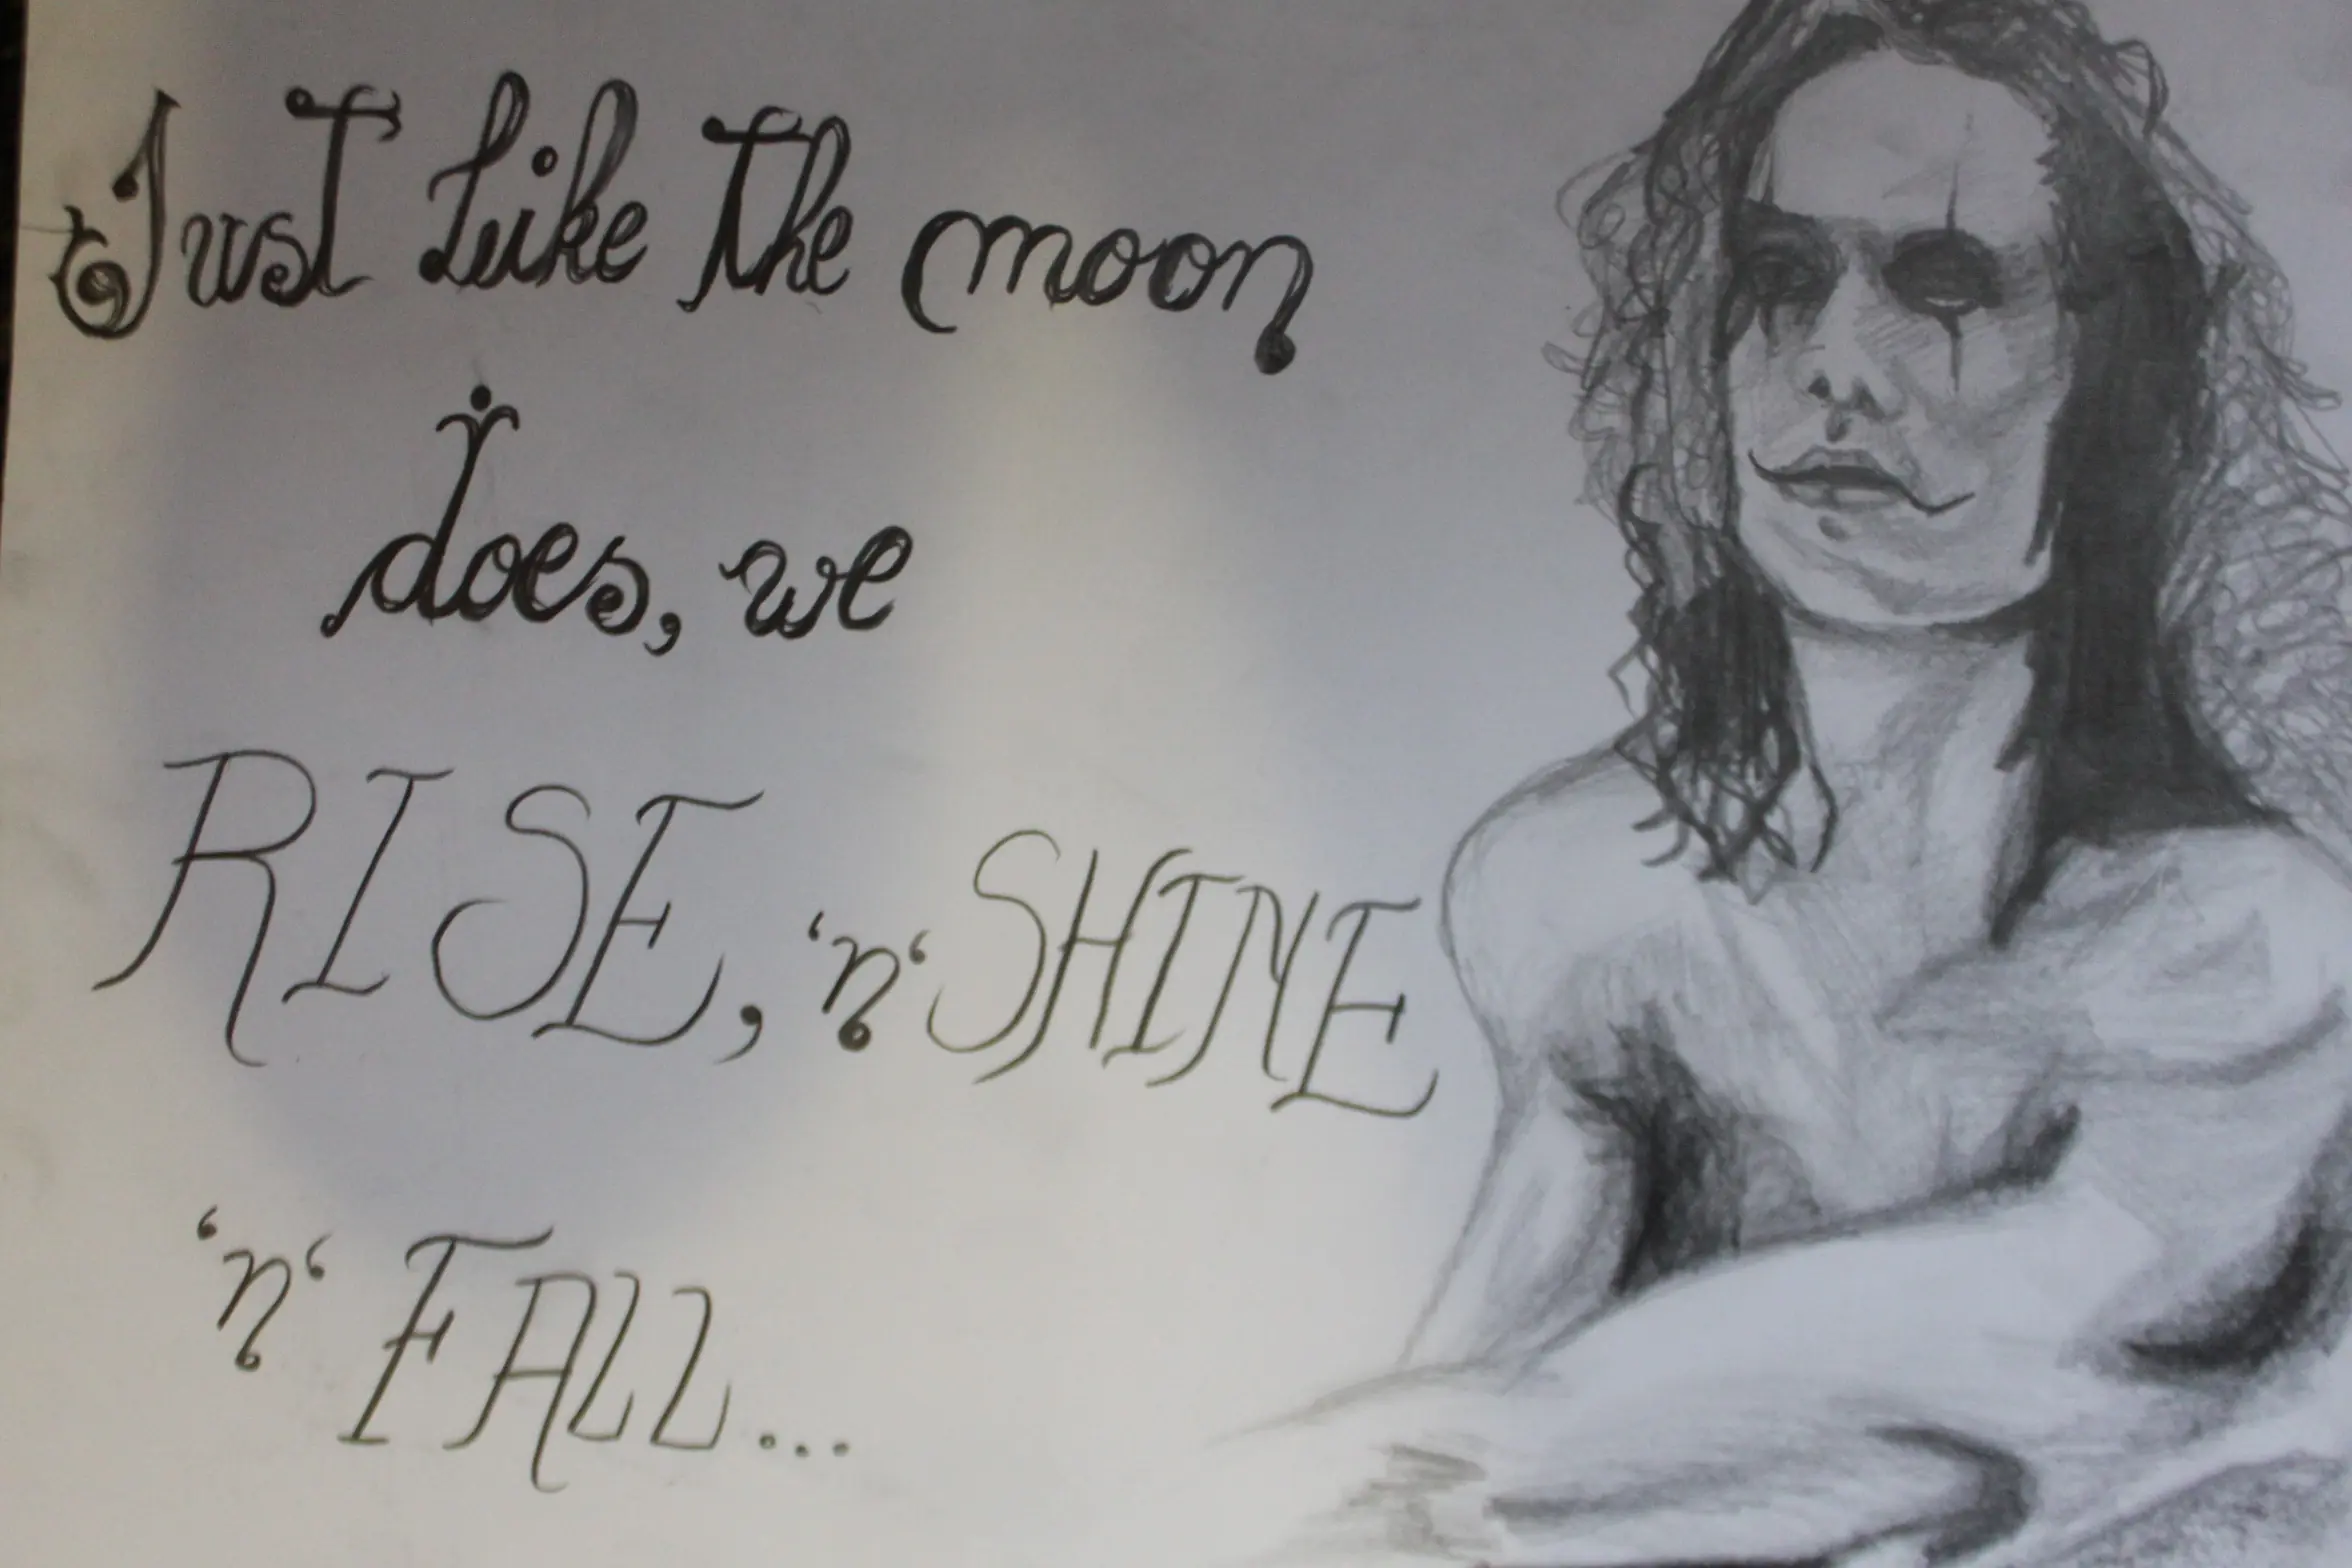 Just Like The moon
does, we
RISE, 'n' SHINE
'n' FALL...